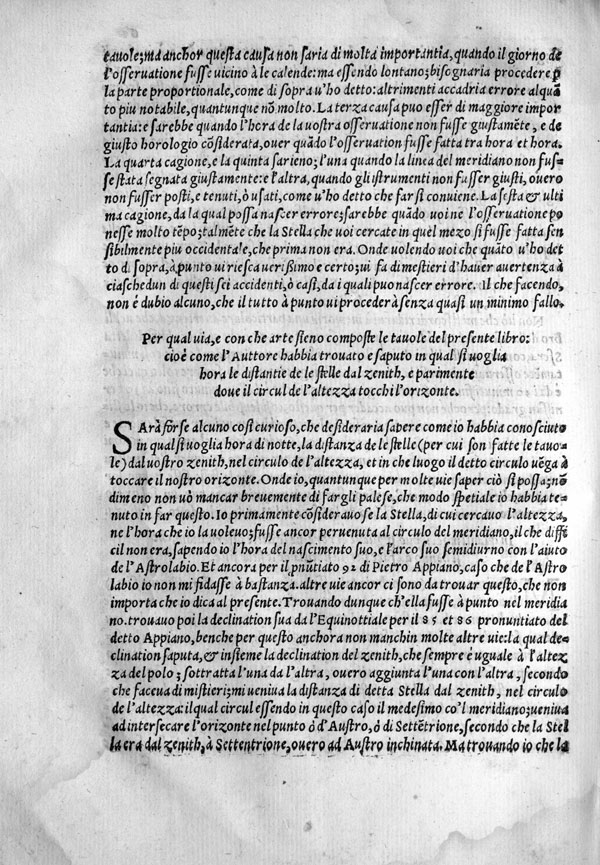 tauole; ma anchor questa causa non saria di molta importantia, quando il giorno de
l'osseruatione fusse uicino à le calende: ma essendo lontano; bisognaria procedere p
la parte proportionale, come di sopra u'ho detto: altrimenti accadria errore al quā
to piu notabile, quantunque nō molto. La terza causa puo esser di maggiore impor
tantia: e sarebbe quando l'hora de la uostra osseruatione non fusse giustamēte, e de
giusto horologio cōsiderata, ouer quādo l'osseruation fusse fatta tra hora et hora.
La quarta cagione, e la quinta sarieno; l'una quando la linea del meridiano non fus-
se stata segnata giustamente: e l'altra, quando gli istrumenti non fusser giusti, ouero
non fusser posti, e tenuti, ò usati, come u'ho detto che far si conuiene. La sesta & ulti
ma cagione, da la qual possa nascer errore; sarebbe quādo uoi ne l'osseruatione po
nesse molto tēpo; talmēte che la Stella che uoi cercate in quel mezo si fusse fatta sen
sibilmente piu occidentale, che prima non era. Onde uolendo uoi che quāto u'ho det
to di sopra, à punto ui riesca uerissimo e certo; ui fa di mestieri d'hauer auertenza à
ciaschedun di questi sei accidenti, ò casi, da i quali puo nascer errore. Il che facendo,
non é dubio alcuno, che il tutto à punto ui procederà senza quasi un minimo fallo.
Per qual uia, e con che arte sieno composte le tauole del presente libro:
cioè come l'Auttore habbia trouato e saputo in qual si uoglia
hora le distantie de le stelle dal zenith, e parimente
doue il circul de l'altezza tocchi l'orizonte.
SArà forse alcuno cosi curioso, che desideraria sapere come io habbia conosciuto
in qual si uoglia hora di notte, la distanza de le stelle (per cui son fatte le tauo-
le) dal uostro zenith, nel circulo de l'altezza, et in che luogo il detto circulo uēga à
toccare il nostro orizonte. Onde io, quantunque per molte uie saper ciò si possa; nō
dimeno non uò mancar breuemente di fargli palese, che modo spetiale io habbia te-
nuto in far questo. Io primamente cōsiderauo se la Stella, di cui cercauo l'altezza,
ne l'hora che io la uoleuo; fusse ancor peruenuta al circulo del meridiano, il che diffi
cil non era, sapendo io l'hora del nascimento suo, e l'arco suo semidiurno con l'aiuto
de l'Astrolabio. Et ancora per il pnūtiato 92 di Pietro Appiano, caso che de l'Astro
labio io non mi fidasse à bastanza. altre uie ancor ci sono da trouar questo, che non
importa che io dica al presente. Trouando dunque ch'ella fusse à punto nel meridia
no. trouauo poi la declination sua da l'Equinottiale per il 85 et 86 pronuntiato del
detto Appiano, benche per questo anchora non manchin molte altre uie: la qual de-
clination saputa, & insieme la declination del zenith, che sempre è uguale à l'altez
za del polo; sottratta l'una da l'altra, ouero aggiunta l'una con l'altra, secondo
che faceua di mistieri; mi ueniua la distanza di detta Stella dal zenith, nel circulo
de l'altezza: il qual circul essendo in questo caso il medesimo co'l meridiano; ueniua
ad intersecare l'orizonte nel punto ò d'Austro, ò di Settētrione, secondo che la Stel
la era dal zenith, à Settentrione, ouero ad Austro inchinata. Ma trouando io che la